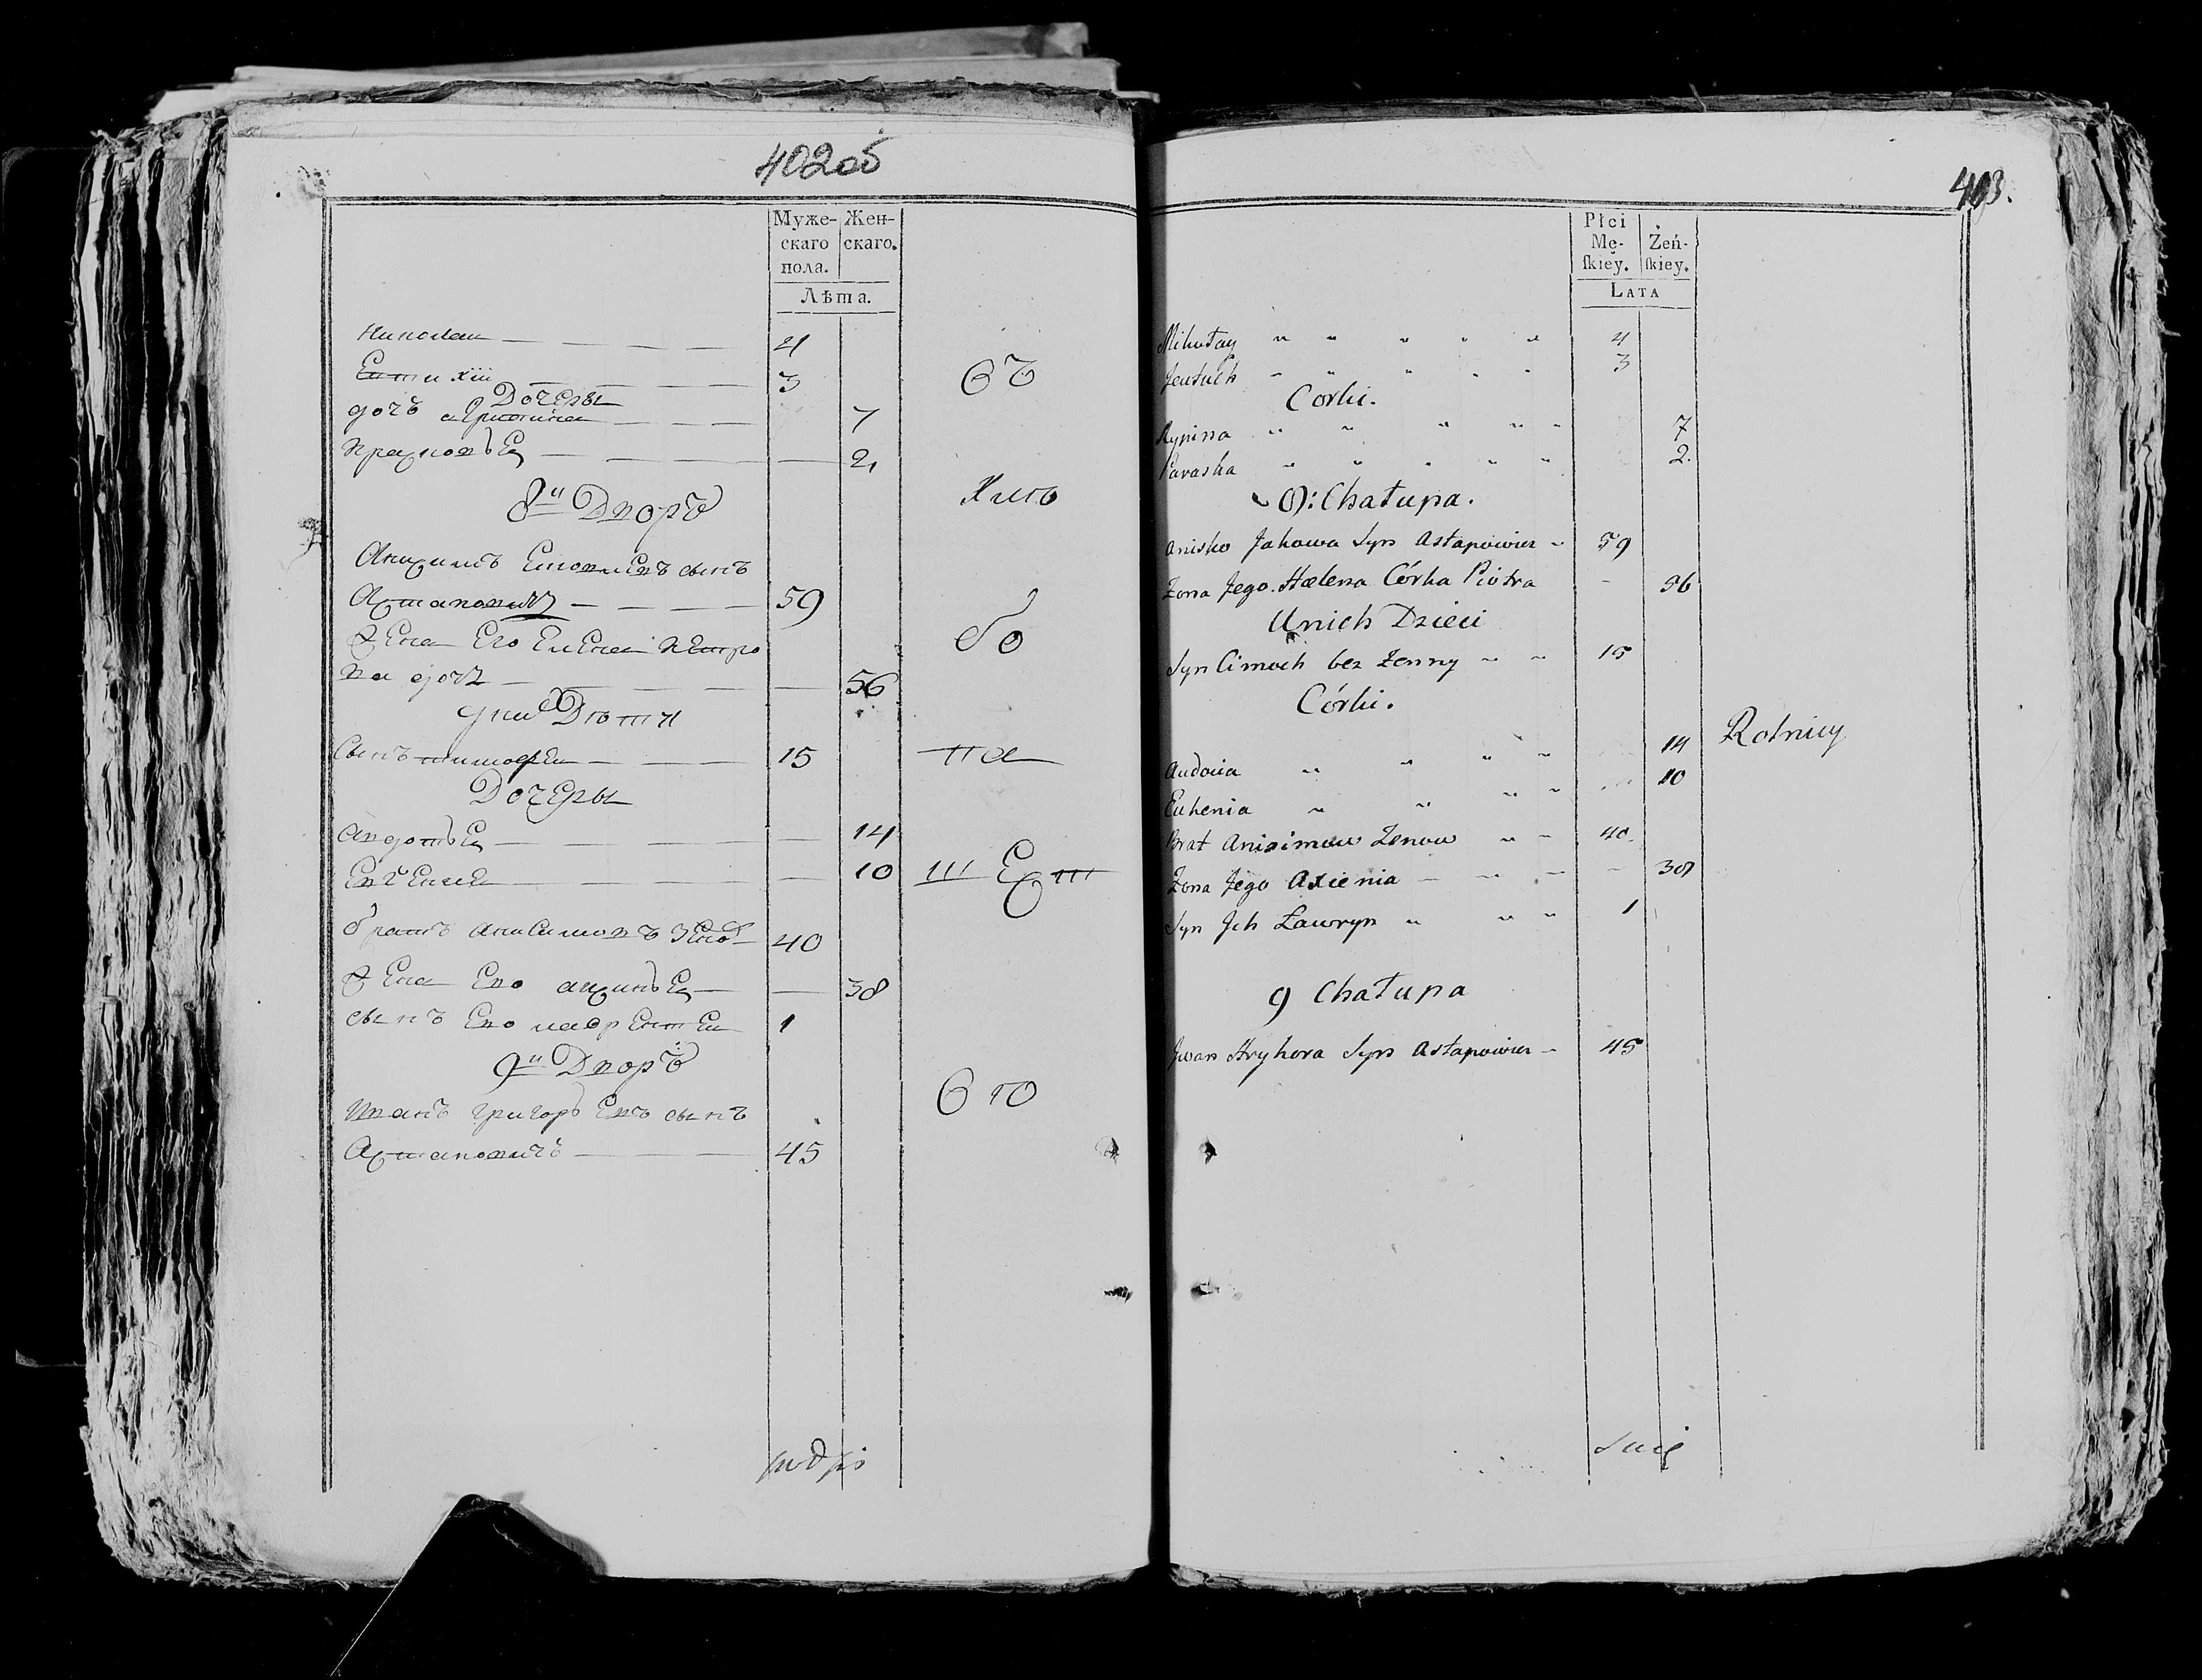 402об
Муже- Жен-
скаго скаго.
пола.
Лѣта.
Николаи 4
Евтихіи 3
Дочеры
дочь 7
Прасковья 2
8й Дворъ
Анисимъ сынъ
Астаповичъ 59
Жена Его Елена Петро
ва дочь 56
у них Дѣти
Сынъ тимофеи 15
Дочеры
Авдотья 14
Евгения 10
братъ анисимовъ Зено 40
Жена Ево аксинья 38
сынъ Ево лаврентеи 1
9й Дворъ
Иванъ григорьевъ сынъ
Астаповичъ 45
бо
на
ш Е т
403.
Płci
Mę- Żeń-
skiey. skiey.
LATA
Mikołay 4
Jeutuch 3
Corki.
Krynina 7
Paraska 2.
8: Chałupa.
Anisko Jakowa Syn Astapowicz 59
Zona Jego Helena Córka Piotra 56
U nich Dzieci
Syn Cimoch bez Zenny 15
Córki.
Audocia 14
Euhenia 10
Rolnicy
Brat Anisimow Zenow 40.
Zona Jego Axienia 38
Syn Jch Ławryn 1
9 Chałupa
Jwan Hryhora Syn Astapowicz 45